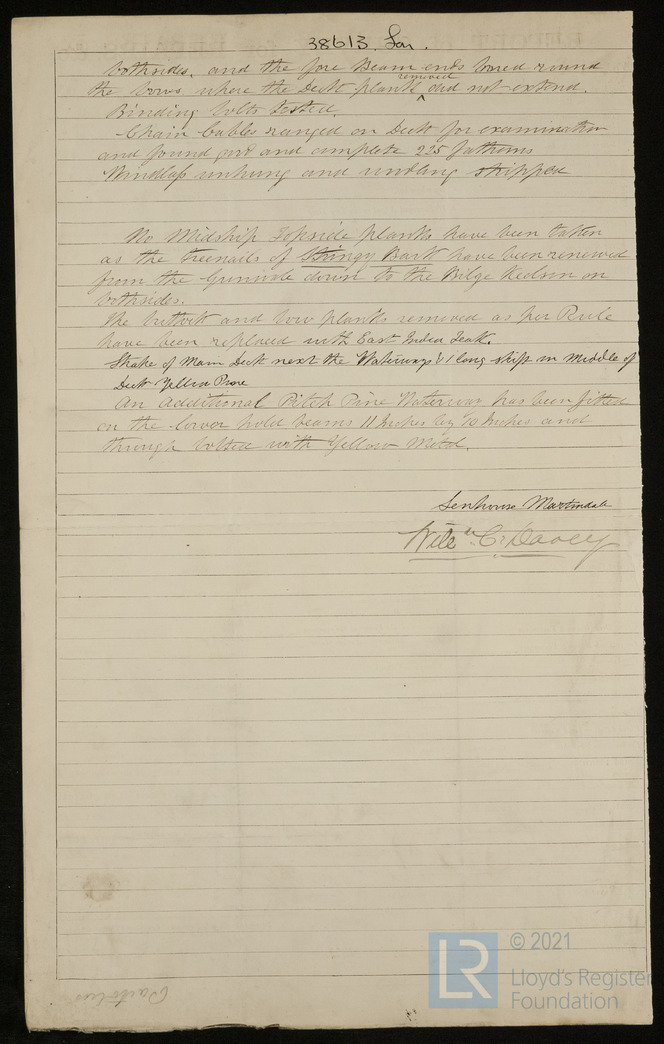 38613. Lon.
bothsides, and the fore Beam ends bored round
the bows where the Deck planks removed did not extend.
Binding bolts tested.
Chain Cables ranged on Deck for examination
and found good and complete 235 fathoms
Windlass unhung and windlass stripped
No Midship Topside planks have been taken
as the Treenails of Stringy Bark have been renewed
from the Gunwale down to the Bilge Keelson on
bothsides.
The buttock and bow planks removed as per Rule
have been replaced with East India Teak.
Strake of Main Deck next the Waterways & 1 long strip in Middle of
Deck Yellow Pine
An additional Pitch Pine Waterway has been fitted
on the lower hold beams 11 Inches by 10 Inches and
through bolted with Yellow Metal.
Senhouse Martindale
Davey
© 2021
LR
Lloyd's Register
Foundation